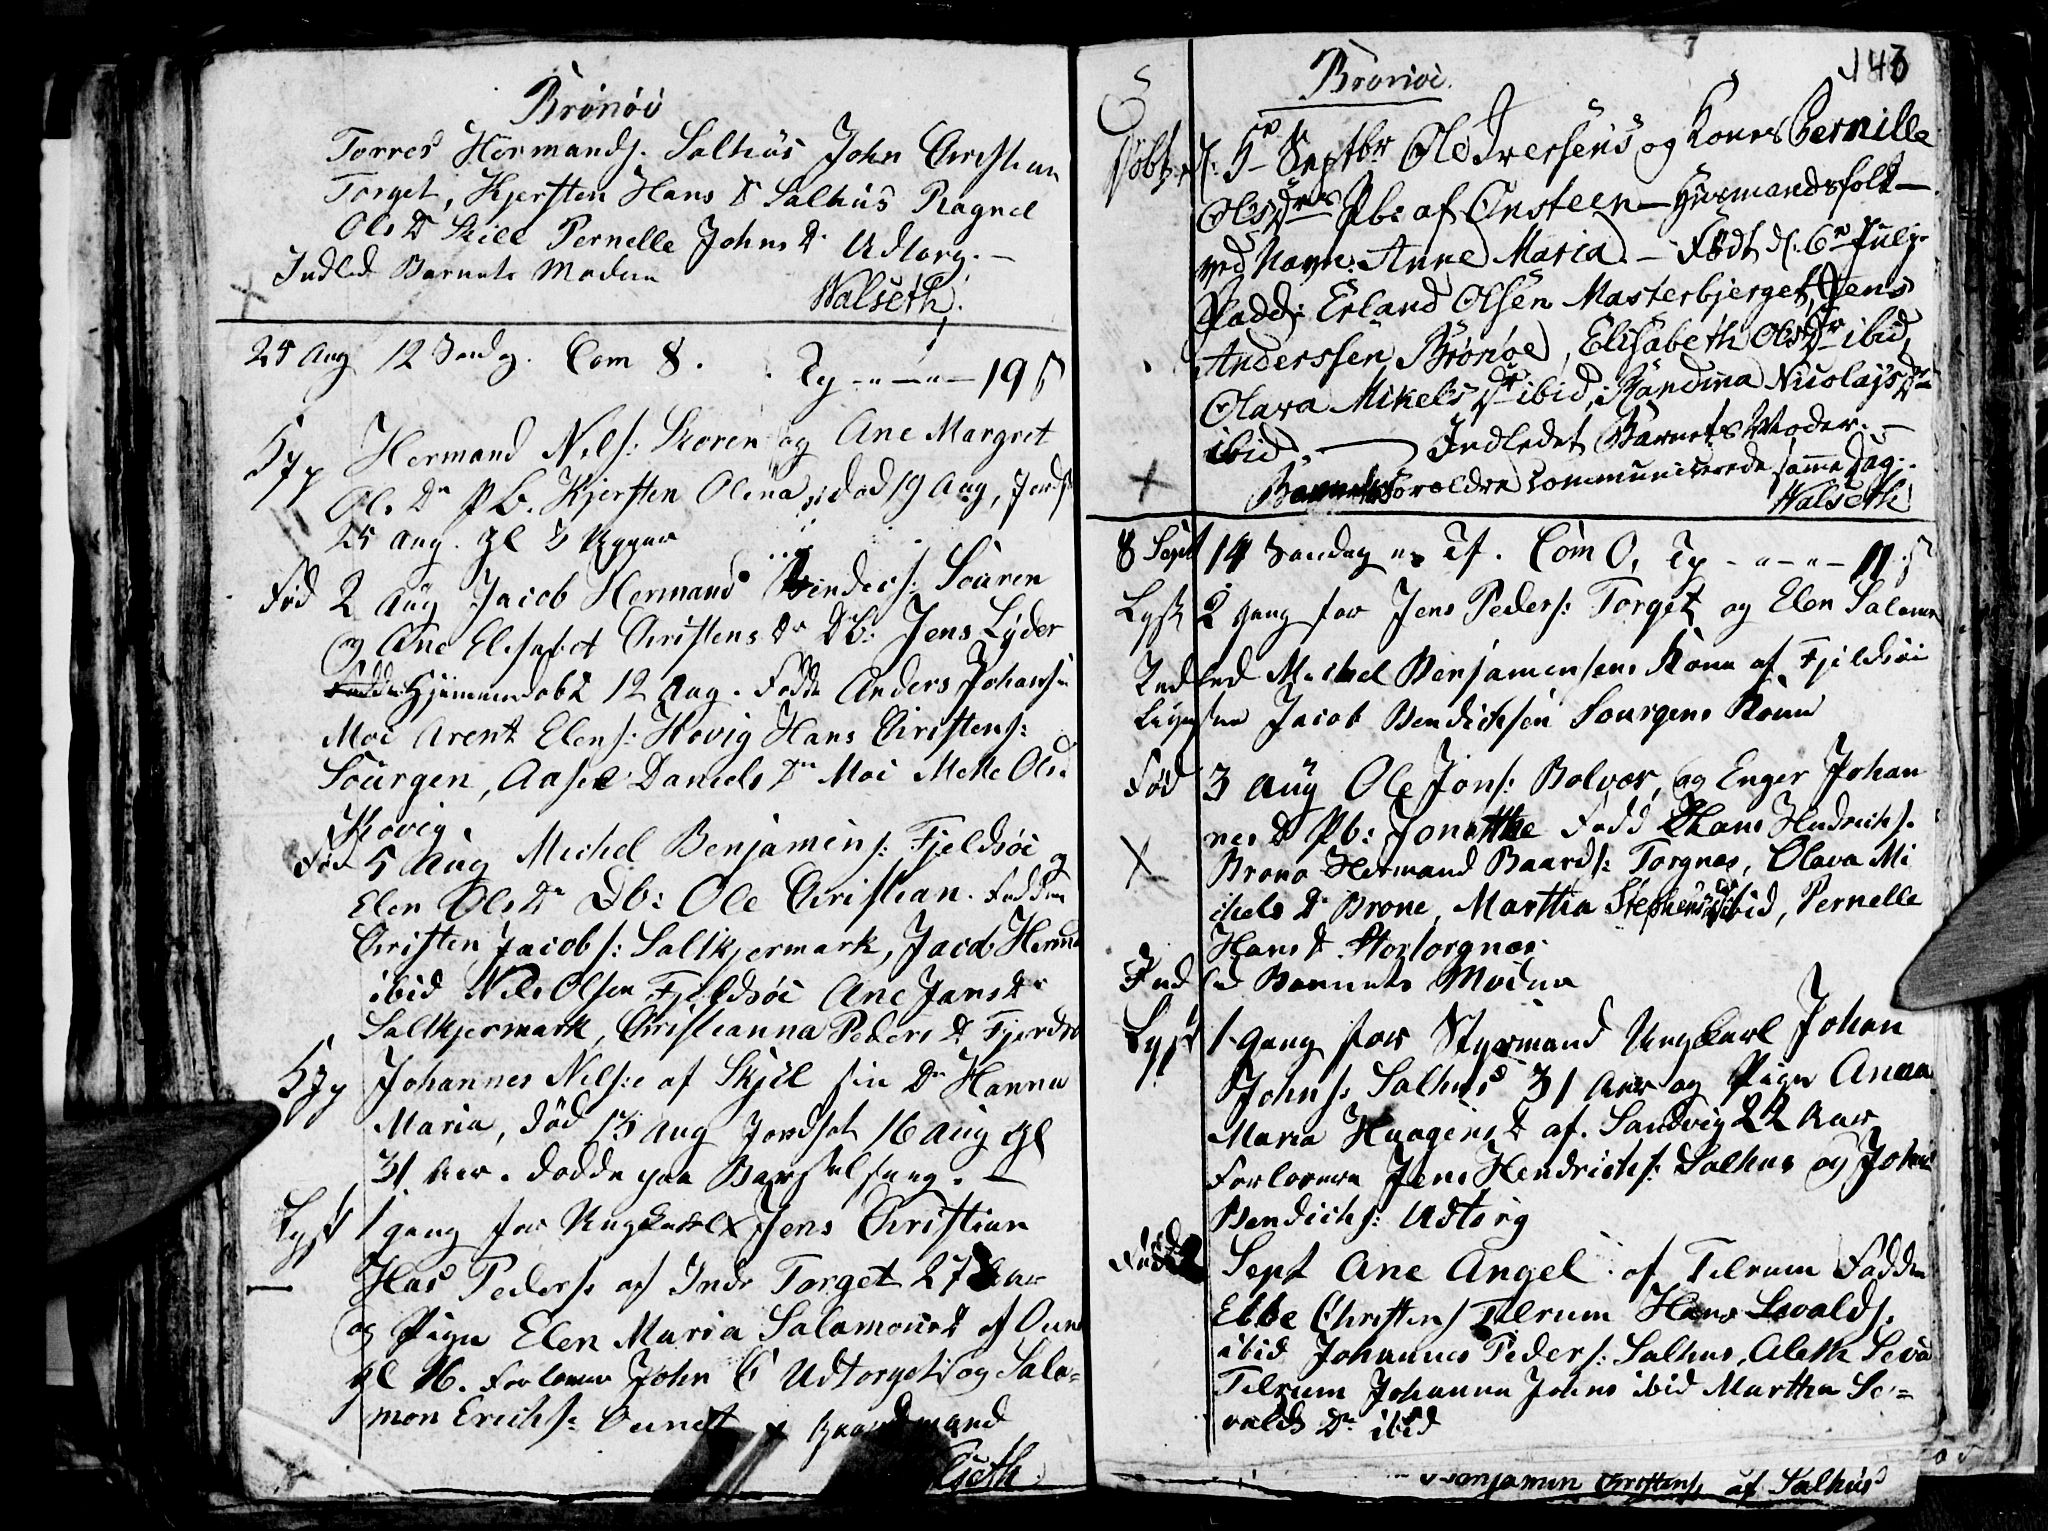 Brönöi
Torres Hermands. Salhüs John Christian
Torget, Kjersten Hans D Salhüs Ragnel
Ols Dr Skill Pernelle Johns Dr Udtorg. —
Indled Barnets Moder
Walseth.
25 Aug 12 Sondg. Com 8. Tp - " - " - 19
Hermand Nels: Skoren og Ane Margret
Ols Dr PB. Kjersten Olena, död 19 Aug, jords
25 Aug. gl 3 Uger
Fød 2 Aug Jacob Hermand Hendrs: Souren
og Ane Elisabet Christens Dr DB: Jens Lyder
Hjemmedøbt 12 Aug. Fadde Anders Johans
Moe Arent Elens: Hovig Hans Christens:
Sourgen, Aasel Daniels Dr Moi Mette Ols
Hovig.
Fød 5 Aug Michel Benjamins: Fjeldsöi og
Elen Ols Dr Db: Ole Christian. Fadder
Christen Jacobs: Saltkjermark, Jacob Herma
ibid Nils Olsen Fjeldsöi Ane Jans Dr
Saltkjermark, Christianna Peders D Fjeldsö
Johannes Nels:e af Skjel sin Dr Hanna
Maria, död 13 Aug Jordsat 16 Aug gl
31 Aar. døde paa Barselseng. —
Lyst 1 gang for Ungkarl Jens Christian
Has Peders. af Indr Torget 27 Aar
og Pige Elen Maria Salamons D af
gl 16. Forlover John Udtorget og Salo=
mon Erichs: Gaardmand
seth
143
Brönöi.
Döbt d: 5te Septbr Ole Iversens og Kones Pernille
Olsdrs Pb: af Önsteen — Huusmandsfolk —
ved Navn: Anne Maria. — Födt d: 6te Julj.
Fadd: Erland Olsen Masterbjerget, Jens
Anderssen Brönöe, Elisabeth Olsdr ibid,
Olava Mikels Dr ibid, Randina Nicolajs Dr
ibid. — Indledet Barnets Moder. —
Barnets Foreldre communicerede samme Dag.
Walseth
8 Sept 14 Sondag " Tf. Com 0, Tp - " - " - 11
Lyst 2 gang for Jens Peders: Torget og Elen Salamo
Indled Michel Benjamensens Kone af Fjeldsöi
Ligesaa Jacob Bendichsen Sourgens Kone
Fød 3 Aug Ole Jons: Bolvær, og Enger Johan
nes D Pb: Jonettke Fadd Hans Hndrichs.
Brono Hermand Baards: Torgnæs, Olava Mi
chels Dr Brone, Martha Stephens Dr ibid, Pernelle
Hans D. Stortorgnæs.
Indled Barnets Moder
Lyst 1 gang for Styrmand Ungkarl Johan
Johns. Salhus 31 Aar og Pige Anna
Maria Haagens D af. Sandvig 22 Aar
Forlovere Jens Hendrichs: Salhus og Johns
Bendichs: Udtorg
Födt 2 Sept Ane Angel af Tilrum Fadder
Ebbe Christens Tilrum Hans Sevalds.
ibid Johannes Peders: Salhus, Aleth Seva
Tilrum Johanna Johns ibid Martha Se=
valds Dr ibid
Benjamin Christens af Salhüs